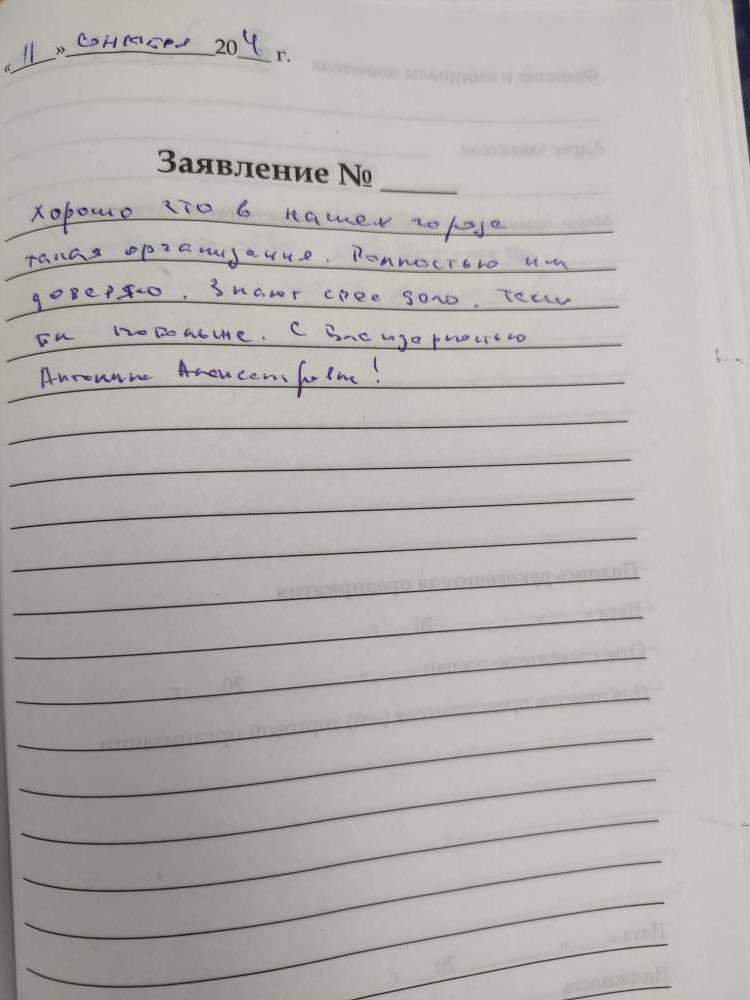 « 11 » сентября 20 4 г.
Заявление № ______
Хорошо что в нашем городе
такая организация. Полностью им
доверяю. Знают свое дело. Таких
бы побольше. С благодарностью
Антонина Александровна!